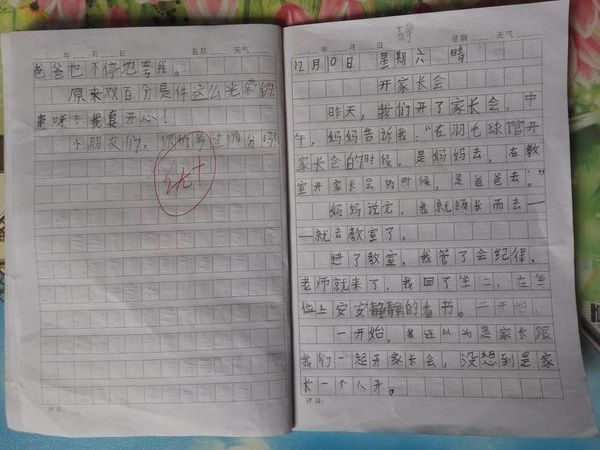 年 月 日 星期 天气
爸爸也不停地夸我。
原来双百分是件这么光荣的
事呀！我真开心！
小朋友们，你听过100分吗
优+
静
年 月 日 星期 天气
12月10日 星期六 晴
开家长会
昨天，我们开了家长会。中
午，妈妈告诉我：“在羽毛球馆开
家长会的时候，是妈妈去，在教
室开家长会的时候，是爸爸去。”
妈妈说完，我就扬长而去一
一就去教室了。
进了教室，我管了会纪律，
老师就来了，我回了坐位，在坐
位上安安静静的看书。
一开始，我还以为是家长跟
我们一起开家长会，没想到是家
长一个人开。
评语:
评语: